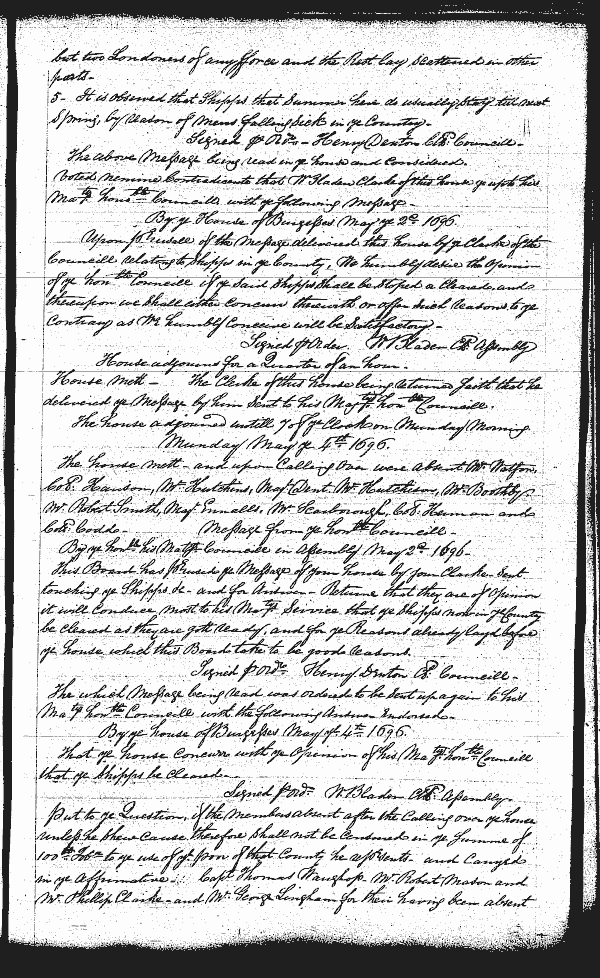 but two Londoners of any fforce and the Rest lay Scattered in other
parts -
5 - It is observed that Shipps that Summer here do usually Stay till next
Spring, by reason of mens falling Sick in ye Country -
Signed p Ordr - Henry Denton Clk Councill -
The above Message being read in ye house and Considered.
Voted nemine Contradicente that Wm Bladen Clarke of this house go up to his
Matys honble Councill with ye following Message -
By ye House of Burgesses May ye 2d 1696
Upon pRusall of the Message delivered this house by ye Clarke of the
Councill relating to Shipps in ye County, We humbly desire the Opinion
of ye honble Councill if ye Said Shipps Shall be Stoped or Cleared and
thereupon we Shall either Concurr therewith or offer Such Reasons to ye
Contrary as We humbly Conceive will be Satisfactory -
Signed p Order. W Bladen Clk Assembly
House adjourns for a Quarter of an hour -
House mett - The Clerke of this house being returned Saith that he
delivered ye Message by him Sent to his Matys honble Councill.
The house adjourned untill 7 of ye Clock on Munday Morning
Munday May ye 4th 1696.
The house mett - and upon Calling Over were absent Mr Watson,
Col. Hanson, Mr Hutchins, Maj Dent. Mr Hutchison, Mr Boothby
Mr Robert Smith, Maj Ennalls, Mr Scarborough, Col. Herman and
Col. Codd - Message from ye honble Councill -
By ye honble his Matys Councill in Assembly May 2d 1696 -
This Board has pRused ye Message of your house by your Clarke Sent
touching ye Shipps &c - and for Answer - Returne that they are of Opinion
it will Conduce most to his Matys Service that ye Shipps now in ye County
be cleared as they are gott ready, and for ye Reasons already layd before
ye house which this Board take to be good Reasons.
Signed p Ordr Henry Denton Cl Councill -
The which Message being read was ordered to be Sent up again to his
Matys honble Councill with the following Answer Endorsed -
By ye house of Burgesses May ye 4th 1696.
That ye house Concurr with ye Opinion of his Matys honble Councill
that ye Shipps be Cleared -
Signed p ordr W Bladen Clk Assembly -
Put to ye Question, if the Members absent after the Calling over ye house
unless he Shew Cause therefore Shall not be Censured in ye Summe of
100lb Tobo to ye use of ye poor of that County he repsents - and Carryed
in ye Affirmative. Capt Thomas Waughop Mr Robert Mason and
Mr Phillip Clarke - and Mr George Lingham for their having been absent